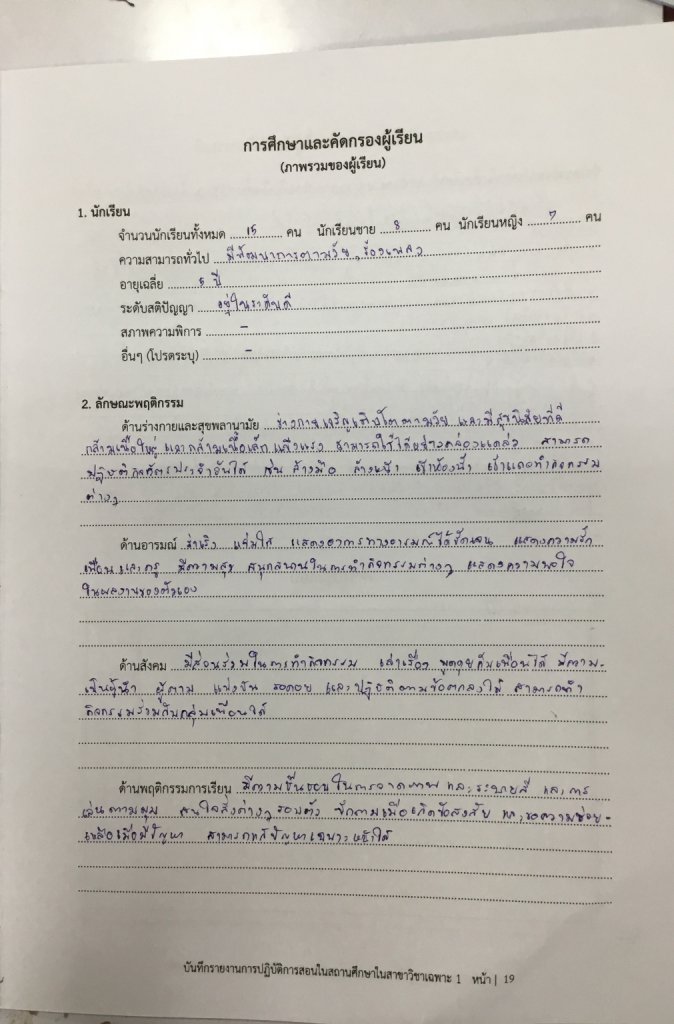 การศึกษาและคัดกรองผู้เรียน
(ภาพรวมของผู้เรียน)
1. นักเรียน
จำนวนนักเรียนทั้งหมด 15 คน นักเรียนชาย 8 คน นักเรียนหญิง 7 คน
ความสามารถทั่วไป มีพัฒนาการตามวัย, ร้องเพลง
อายุเฉลี่ย 5 ปี
ระดับสติปัญญา อยู่ในระดับดี
สภาพความพิการ -
อื่นๆ (โปรดระบุ) -
2. ลักษณะพฤติกรรม
ด้านร่างกายและสุขพลานามัย ร่างกายเจริญเติบโตตามวัย และมีสุขนิสัยที่ดี
กล้ามเนื้อใหญ่ และกล้ามเนื้อเล็กแข็งแรง สามารถใช้ได้อย่างคล่องแคล่ว สามารถ
ปฏิบัติกิจวัตรประจำวันได้ เช่น ล้างมือ ล้างหน้า เข้าห้องน้ำ เข้าแถวทำกิจกรรม
ต่างๆ
ด้านอารมณ์ ร่าเริง แจ่มใส แสดงอาการทางอารมณ์ได้ชัดเจน แสดงความรัก
เพื่อนและครู มีความสุข สนุกสนานในการทำกิจกรรมต่างๆ แสดงความพอใจ
ในผลงานของตัวเอง
ด้านสังคม มีส่วนร่วมในการทำกิจกรรม เล่าเรื่อง พูดคุยกับเพื่อนได้ มีความ-
เป็นผู้นำ ผู้ตาม แบ่งปัน รอคอย และปฏิบัติตามข้อตกลงได้ สามารถทำ
กิจกรรมร่วมกับกลุ่มเพื่อนได้
ด้านพฤติกรรมการเรียน มีความชื่นชอบในการวาดภาพ และระบายสี และการ
เล่นตามมุม สนใจสิ่งต่างๆรอบตัว ซักถามเมื่อเกิดข้อสงสัย และขอความช่วย-
เหลือเมื่อมีปัญหา สามารถแก้ปัญหาเฉพาะหน้าได้
บันทึกรายงานการปฏิบัติการสอนในสถานศึกษาในสาขาวิชาเฉพาะ 1 หน้า | 19